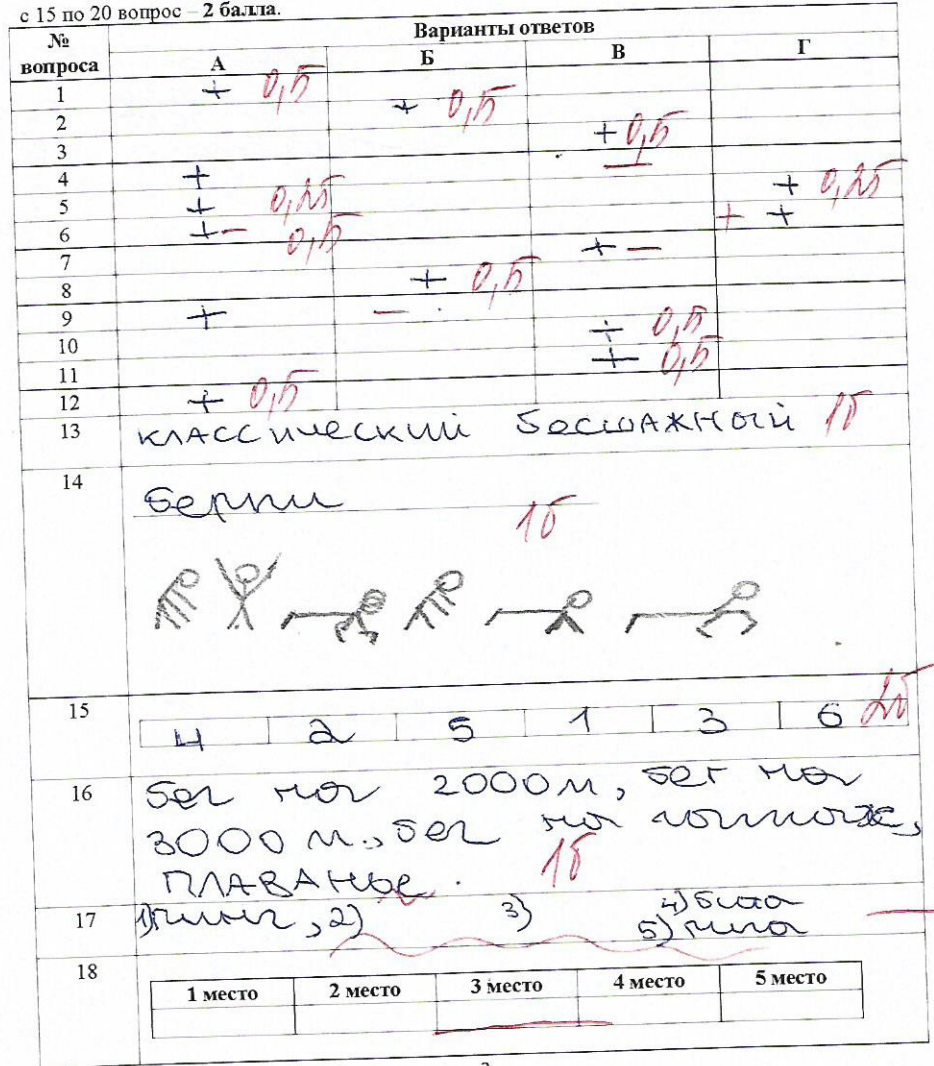 с 15 по 20 вопрос – 2 балла.
№ вопроса Варианты ответов
А Б В Г
1 + 0,5
2 + 0,5
3 + 0,5
4 + —
5 + 0,25 + 0,25
6 + — 0,5 + +
7 + —
8 + 0,5
9 + —
10 + 0,5
11 + 0,5
12 + 0,5
13 классический бесшажный 1б
14 берпи 1б
15 4 2 5 1 3 6 2б
16 бег на 2000м, бег на
3000 м., бег на лыжах,
плаванье. 1б
17 1) пинг, 2) 3) 4) бита
5) лига
18 1 место 2 место 3 место 4 место 5 место